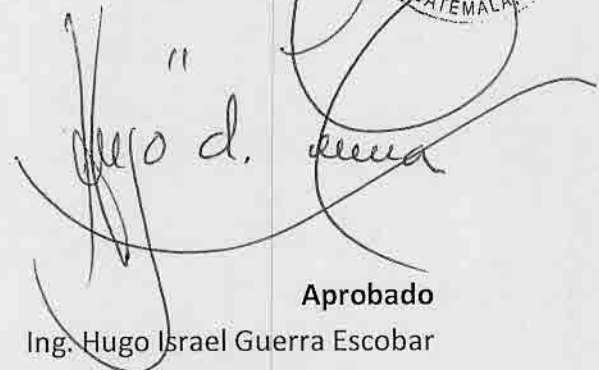 GUATEMALA
Hugo I. Guerra
Aprobado
Ing. Hugo Israel Guerra Escobar